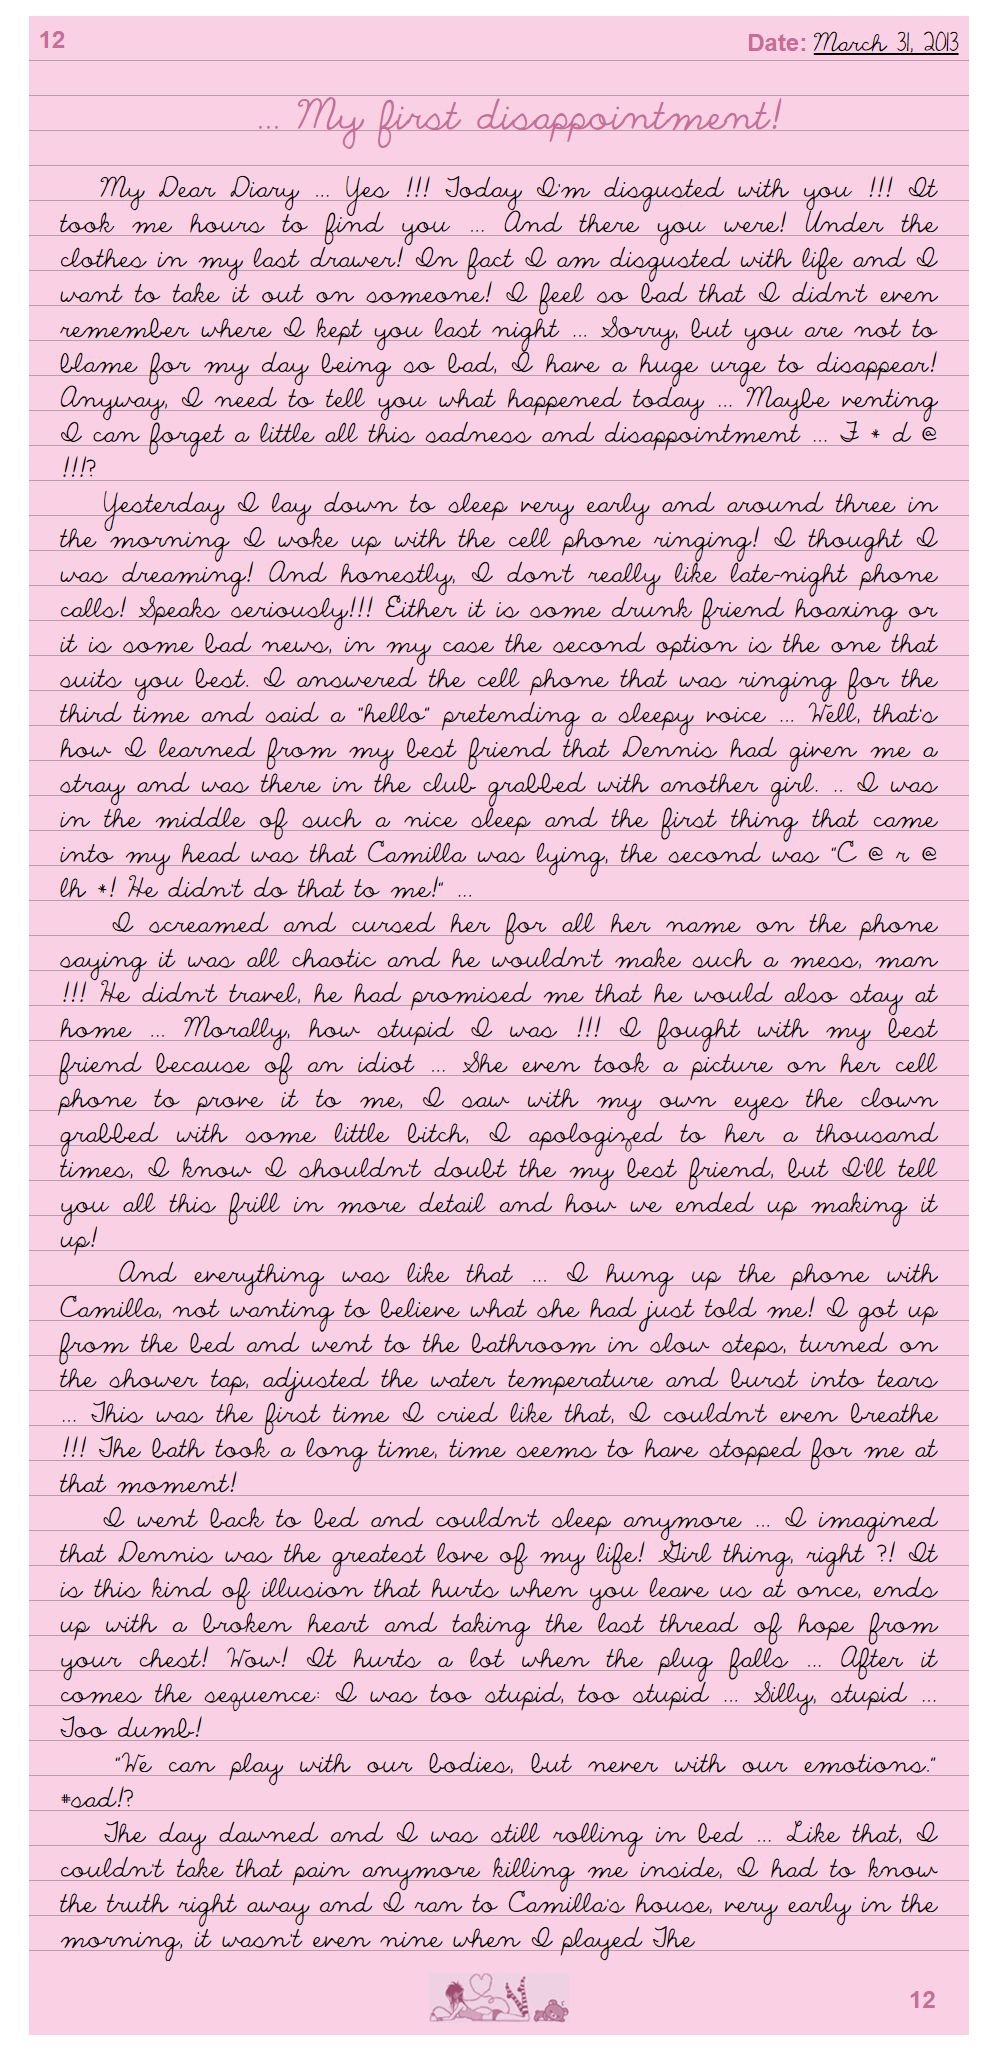 12
Date: March 31, 2013
... My first disappointment!
My Dear Diary ... Yes !!! Today I'm disgusted with you !!! It
took me hours to find you ... And there you were! Under the
clothes in my last drawer! In fact I am disgusted with life and I
want to take it out on someone! I feel so bad that I didn't even
remember where I kept you last night ... Sorry, but you are not to
blame for my day being so bad, I have a huge urge to disappear!
Anyway, I need to tell you what happened today ... Maybe venting
I can forget a little all this sadness and disappointment ... F * d @
!!!?
Yesterday I lay down to sleep very early and around three in
the morning I woke up with the cell phone ringing! I thought I
was dreaming! And honestly, I don't really like late-night phone
calls! Speaks seriously!!! Either it is some drunk friend hoaxing or
it is some bad news, in my case the second option is the one that
suits you best. I answered the cell phone that was ringing for the
third time and said a "hello" pretending a sleepy voice ... Well, that's
how I learned from my best friend that Dennis had given me a
stray and was there in the club grabbed with another girl. .. I was
in the middle of such a nice sleep and the first thing that came
into my head was that Camilla was lying, the second was "C @ r @
lh *! He didn't do that to me!" ...
I screamed and cursed her for all her name on the phone
saying it was all chaotic and he wouldn't make such a mess, man
!!! He didn't travel, he had promised me that he would also stay at
home ... Morally, how stupid I was !!! I fought with my best
friend because of an idiot ... She even took a picture on her cell
phone to prove it to me, I saw with my own eyes the clown
grabbed with some little bitch, I apologized to her a thousand
times, I know I shouldn't doubt the my best friend, but I'll tell
you all this frill in more detail and how we ended up making it
up!
And everything was like that ... I hung up the phone with
Camilla, not wanting to believe what she had just told me! I got up
from the bed and went to the bathroom in slow steps, turned on
the shower tap, adjusted the water temperature and burst into tears
... This was the first time I cried like that, I couldn't even breathe
!!! The bath took a long time, time seems to have stopped for me at
that moment!
I went back to bed and couldn't sleep anymore ... I imagined
that Dennis was the greatest love of my life! Girl thing, right ?! It
is this kind of illusion that hurts when you leave us at once, ends
up with a broken heart and taking the last thread of hope from
your chest! Wow! It hurts a lot when the plug falls ... After it
comes the sequence: I was too stupid, too stupid ... Silly, stupid ...
Too dumb!
"We can play with our bodies, but never with our emotions."
#sad!?
The day dawned and I was still rolling in bed ... Like that, I
couldn't take that pain anymore killing me inside, I had to know
the truth right away and I ran to Camilla's house, very early in the
morning, it wasn't even nine when I played The
12